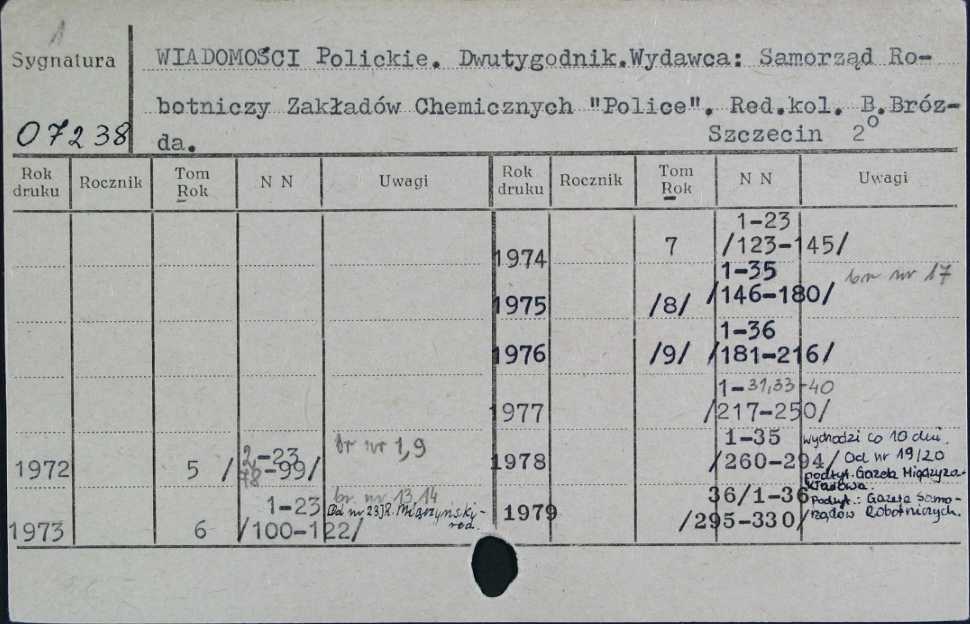 1
Sygnatura
07238
WIADOMOŚCI Polickie. Dwutygodnik.Wydawca: Samorząd Ro-
botniczy Zakładów Chemicznych "Police". Red.kol. B.Bróz-
da. Szczecin 2°
Rok druku Rocznik Tom Rok N N Uwagi Rok druku Rocznik Tom Rok N N Uwagi
1972 5 /-23 -99/ br nr 1,9
1973 6 1-23 /100-122/ br. nr. 13,14
Od nr 23 J.R. Miączyński - red.
1974 7 1-23 /123-145/
1975 /8/ 1-35 /146-180/ br nr 17
1976 /9/ 1-36 /181-216/
1977 1-31,33-40 /217-250/
1978 1-35 /260-294/ wychodzi co 10 dni.
Od nr 19/20
podtyt. Gazeta Międzyza-
kładowa.
1979 36/1-36 /295-330/ Podtyt.: Gazeta Samo-
rządów Robotniczych.